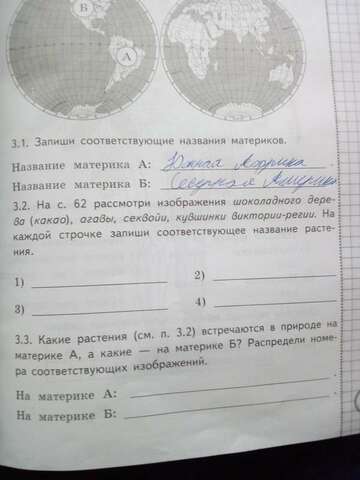 Б
А
3.1. Запиши соответствующие названия материков.
Название материка А: Южная Африка.
Название материка Б: Северная Америка
3.2. На с. 62 рассмотри изображения шоколадного дере-
ва (какао), агавы, секвойи, кувшинки виктории-регии. На
каждой строчке запиши соответствующее название расте-
ния.
1) 2)
3) 4)
3.3. Какие растения (см. п. 3.2) встречаются в природе на
материке А, а какие — на материке Б? Распредели номе-
ра соответствующих изображений.
На материке А:
На материке Б: